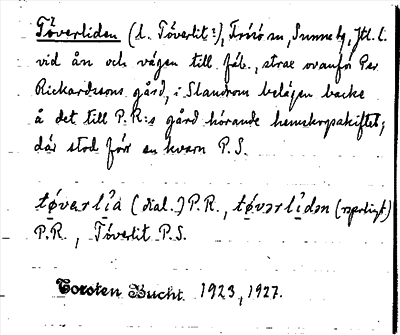 Töverliden (l. Töverlit?), Frösö sn, Sunne tg, Jtl. l.
vid ån och vägen till fäb., strax ovanför Per
Rickardssons gård, i Slandrom belägen backe
å det till P.R:s gård hörande hemskogsskiftet;
där stod förr en kvarn P.S.
(dial.) P.R.,
P.R., Töverlit P.S.
Torsten Bucht 1923, 1927.